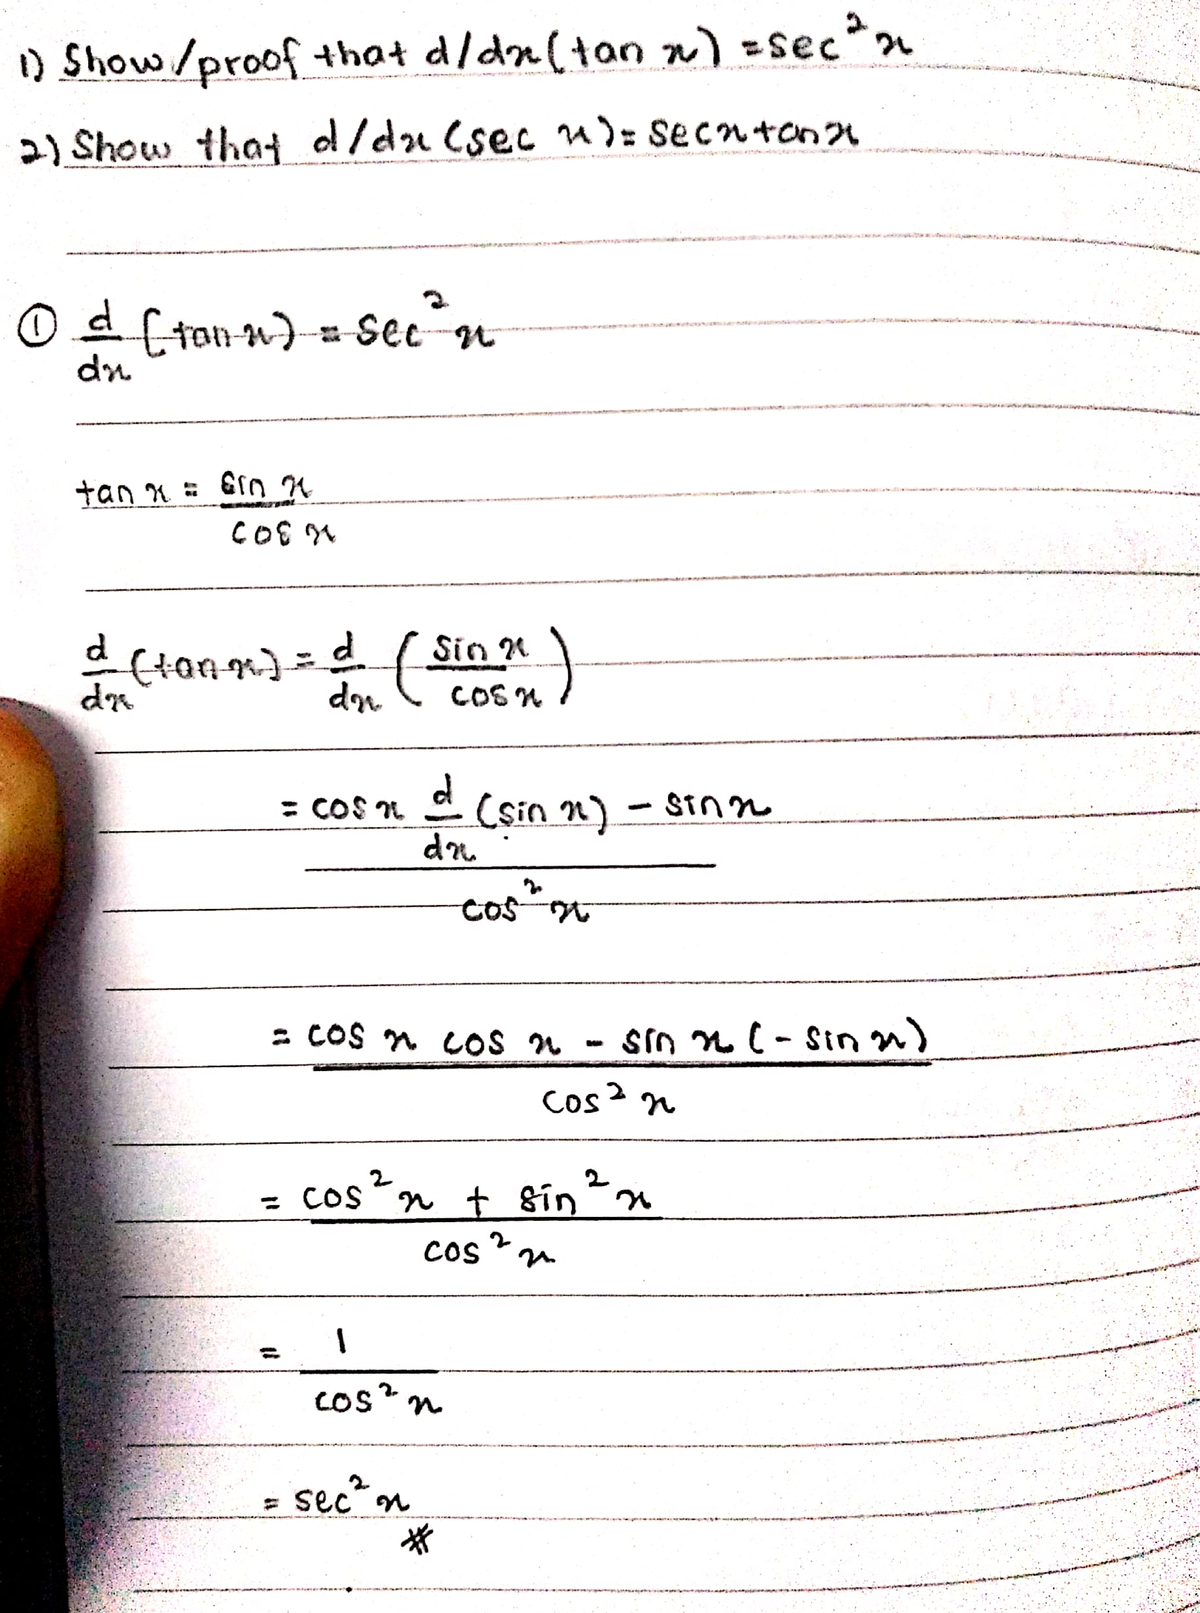 1) Show/proof that d/dx(tan x) = sec²x
2) Show that d/dx (sec x) = secxtanx
① d/dx (tan x) = sec²x
tan x = sin x / cos x
d/dx (tan x) = d/dx ( sin x / cos x )
= cos x d/dx (sin x) - sin x
cos²x
= cos x cos x - sin x (- sin x)
cos² x
= cos²x + sin²x
cos²x
= 1
cos²x
= sec²x
#